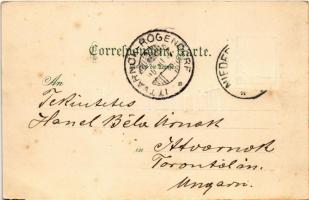 Correspondenz-Karte.
ITTVARNOK ROGENDORF
NIEDER
An
Tekintetes
Hanel Béla Urnak
in Ittvarnok
Torontál m.
Ungarn.